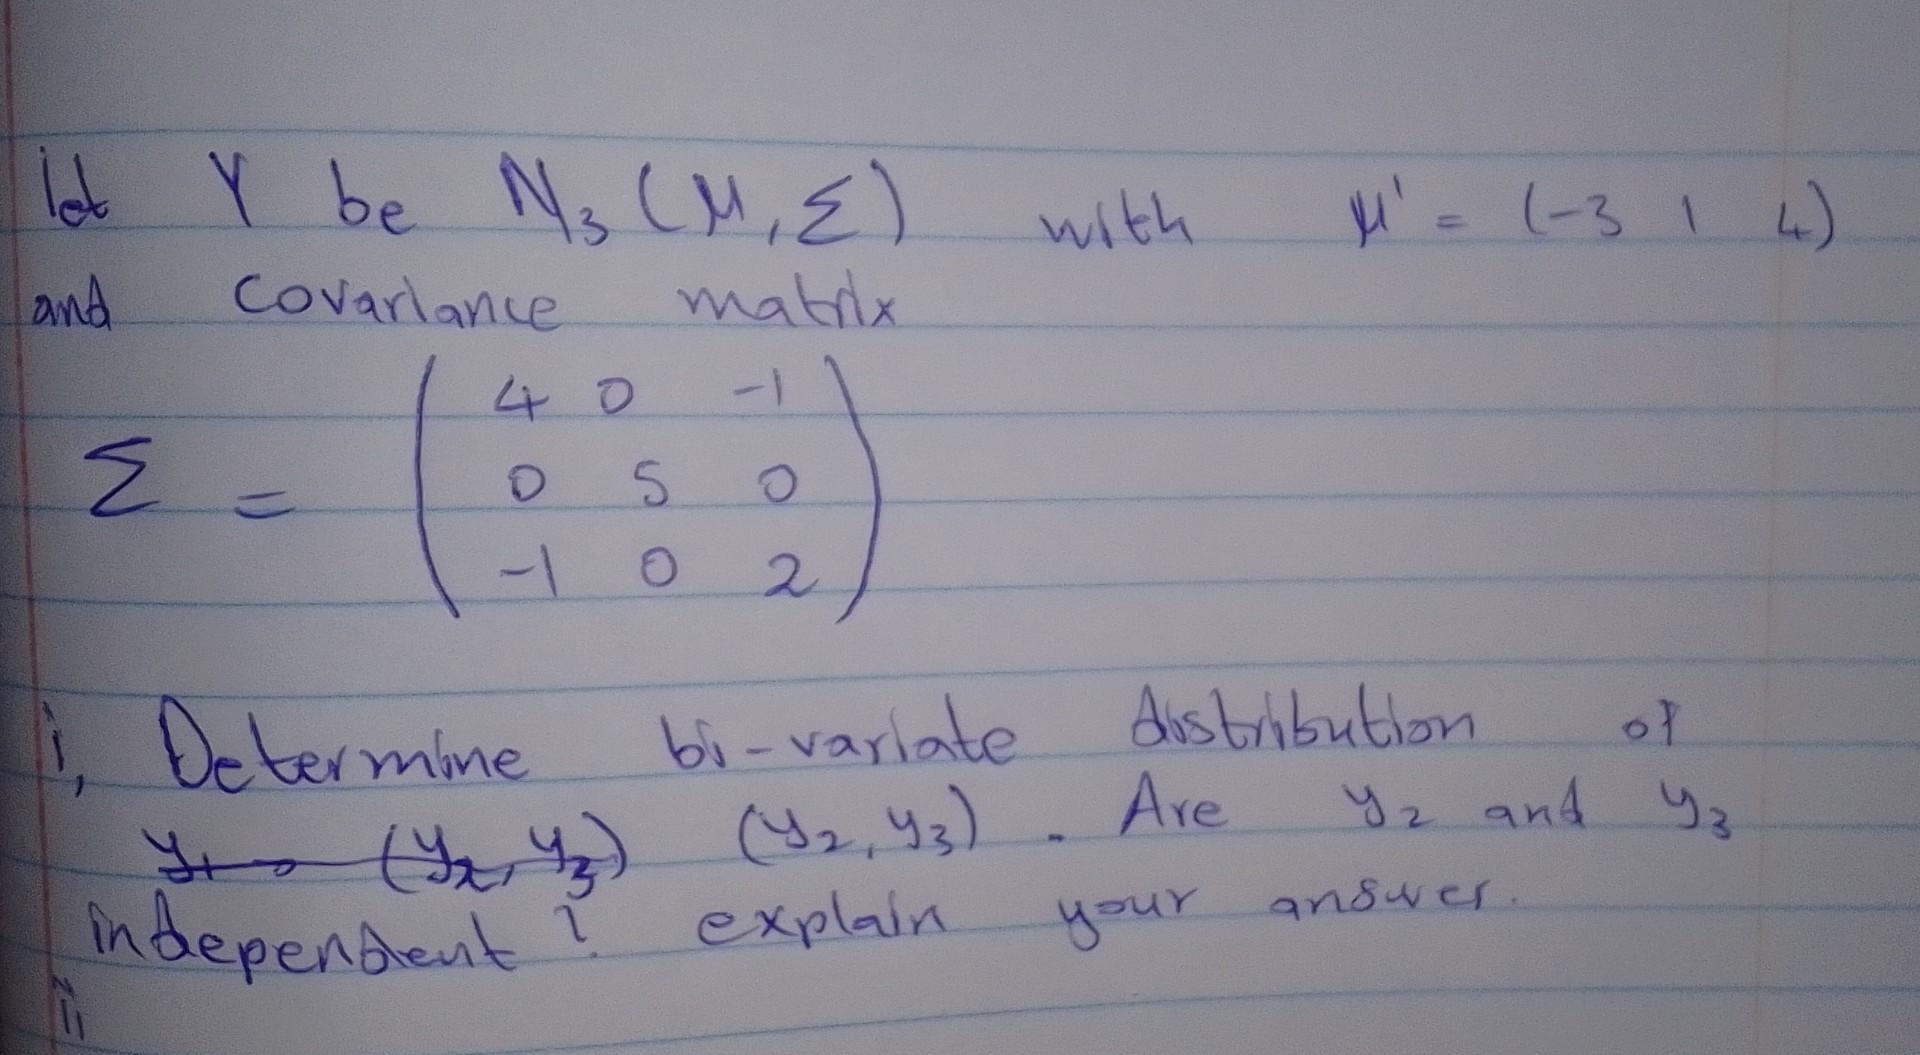 let Y be N₃ (μ, Σ) with μ' = (-3 1 4)
and covariance matrix
4 0 -1
Σ = 0 5 0
-1 0 2
i, Determine bi-variate distribution of
y₁ (y₂, y₃) (y₂, y₃). Are y₂ and y₃
independent? explain your answer.
ii